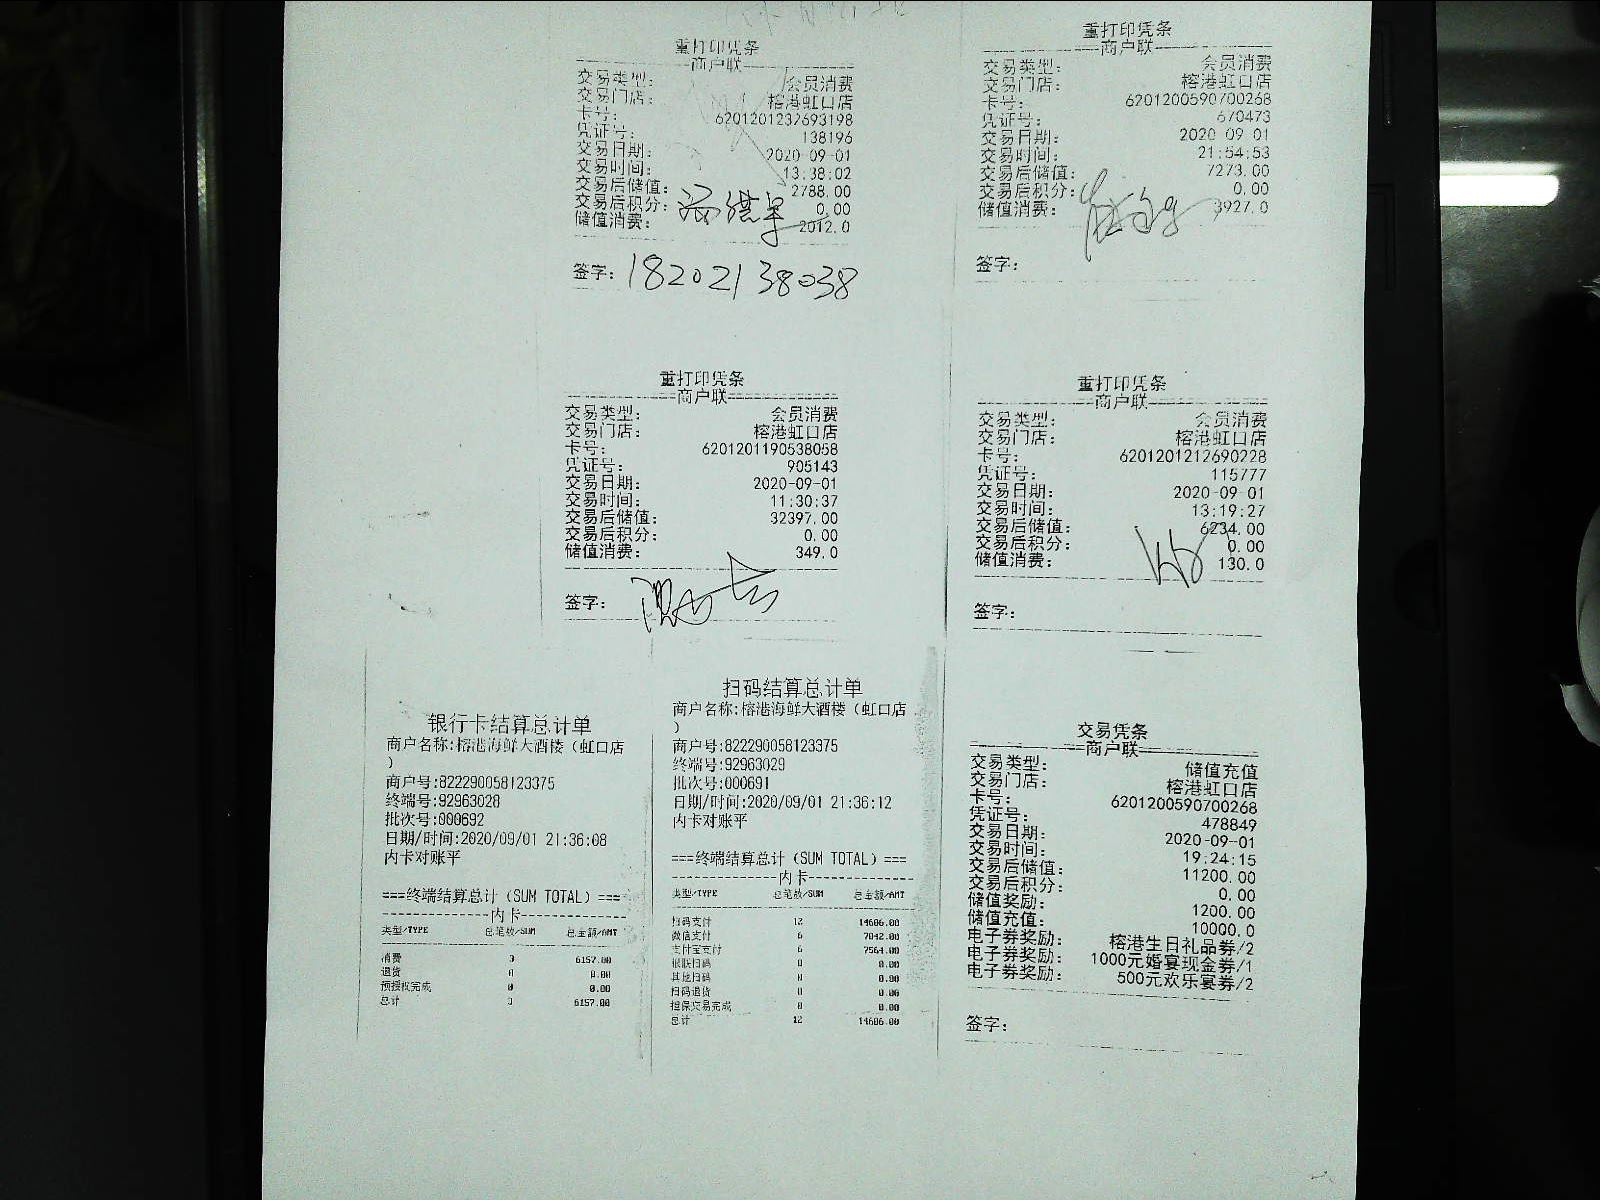 重打印凭条
商户联
交易类型: 会员消费
交易门店: 榕港虹口店
卡号: 6201201232693198
凭证号: 138196
交易日期: 2020-09-01
交易时间: 13:38:02
交易后储值: 2788.00
交易后积分: 0.00
储值消费: 2012.0
签字: 18202138038
重打印凭条
商户联
交易类型: 会员消费
交易门店: 榕港虹口店
卡号: 6201200590700268
凭证号: 670473
交易日期: 2020-09-01
交易时间: 21:54:53
交易后储值: 7273.00
交易后积分: 0.00
储值消费: 3927.0
签字:
重打印凭条
商户联
交易类型: 会员消费
交易门店: 榕港虹口店
卡号: 6201201190538058
凭证号: 905143
交易日期: 2020-09-01
交易时间: 11:30:37
交易后储值: 32397.00
交易后积分: 0.00
储值消费: 349.0
签字:
重打印凭条
商户联
交易类型: 会员消费
交易门店: 榕港虹口店
卡号: 6201201212690228
凭证号: 115777
交易日期: 2020-09-01
交易时间: 13:19:27
交易后储值: 6234.00
交易后积分: 0.00
储值消费: 130.0
签字:
银行卡结算总计单
商户名称:榕港海鲜大酒楼（虹口店
）
商户号:822290058123375
终端号:92963028
批次号:000692
日期/时间:2020/09/01 21:36:08
内卡对账平
===终端结算总计（SUM TOTAL）===
内卡
类型/TYPE 总笔数/SUM 总金额/AMT
消费 3 6157.00
退货 0 0.00
预授权完成 0 0.00
总计 3 6157.00
扫码结算总计单
商户名称:榕港海鲜大酒楼（虹口店
）
商户号:822290058123375
终端号:92963029
批次号:000691
日期/时间:2020/09/01 21:36:12
内卡对账平
===终端结算总计（SUM TOTAL）===
内卡
类型/TYPE 总笔数/SUM 总金额/AMT
扫码支付 12 14606.00
微信支付 6 7042.00
支付宝支付 6 7564.00
银联扫码 0 0.00
其他扫码 0 0.00
扫码退货 0 0.00
担保交易完成 0 0.00
总计 12 14606.00
交易凭条
商户联
交易类型: 储值充值
交易门店: 榕港虹口店
卡号: 6201200590700268
凭证号: 478849
交易日期: 2020-09-01
交易时间: 19:24:15
交易后储值: 11200.00
交易后积分: 0.00
储值奖励: 1200.00
储值充值: 10000.0
电子券奖励: 榕港生日礼品券/2
电子券奖励: 1000元婚宴现金券/1
电子券奖励: 500元欢乐宴券/2
签字: